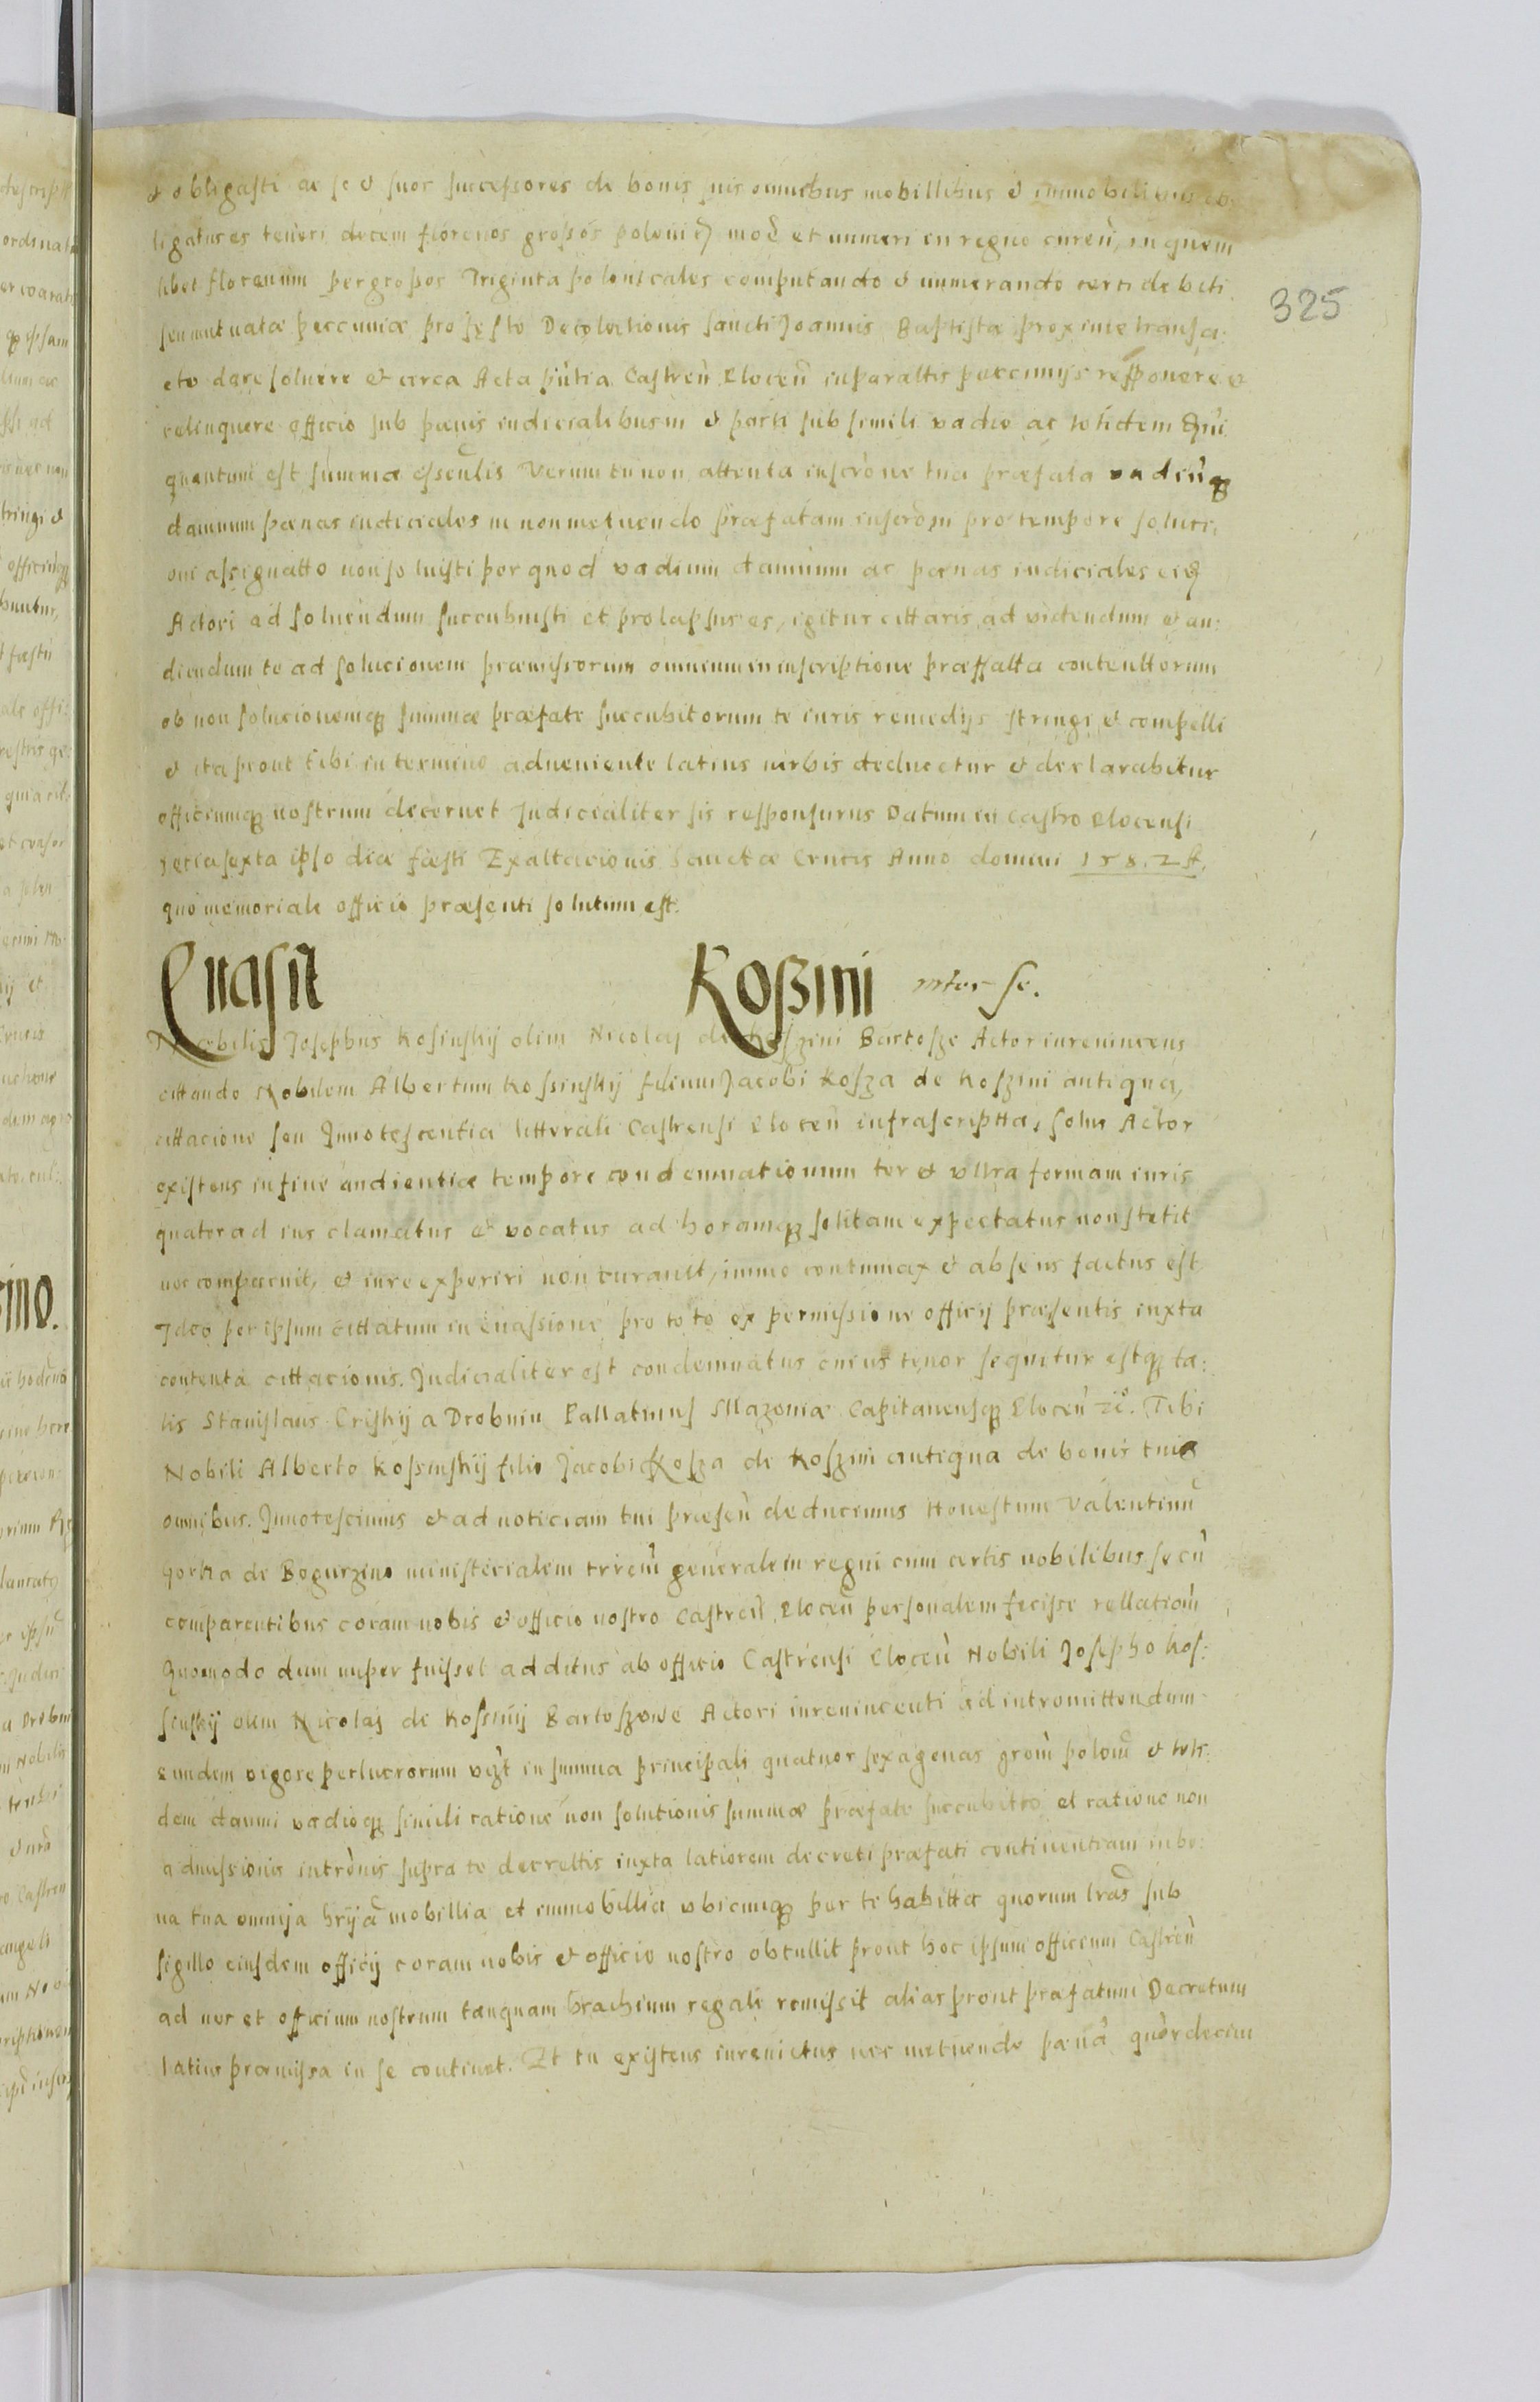 & obligasti ac se & suos successores de bonis suis omnibus mobillibus & immobilibus ob
ligatus es teneri decem florenos grossos poloni mo et numeri in regno curen, in quem
libet florenum per grossos Triginta polonicales computando & numerando certi debiti
seu mutuatæ peccuniæ pro festo Decolationis sancti Joannis Baptistæ proxime transa:
cto dare soluere & circa Acta pñtia Castreñ Ploceñ in paratis peccunijs reponere &
relinquere officio sub pænis iudicialibus in & parti sub simili vadio ac totidem
quantum est summa essenlis Verum tu non attenta inscrone tua præfata vadiuq
damnum pænas iudiciales in non metuendo præfatam inscrom pro tempore soluti,
oni assignatto non soluisti per quod vadium damnum ac pænas iudiciales
Actori ad soluendum succubuisti et prolapsus es, igitur cittaris ad videndum & au:
diendum te ad solucionem præmissorum omnium in inscriptione præffatta contenttorum
ob non solucionemq summæ præfate succubitorum te iuris remedijs stringi & compelli
& ita prout tibi in termino adueniente latius verbis deducetur & declarabitur
officiumq nostrum decernet Judicialiter sis responsurus Datum in castro Plocensi
feria sexta ipso die fæsti Exaltacionis Sanctæ Crucis Anno domini 158.2
quo memoriale officio præsenti solutum est.
Euasit Koßini inter se.
Nobilis Josephus Kosinskij olim Nicolaj de Koszini Bartosze Actor iureuincens
cittando Nobilem Albertum Kossinskij filium Jacobi Kosza de Koszini antiqua,
cittacione seu Innotescentia litterali Castrensi Ploceñ infrascriptta, solus Actor
existens in fine audientiæ tempore condemnationum ter & vltra formam iuris
quater ad ius clamatus & vocatus ad horamq solitam expectatus non stetit
nec comparuit, & iure experiri non curauit, immo contumax & absens factus est
Ideo per ipsum cittatum in euassione pro toto ex permissione officij præsentis iuxta
contenta cittacionis. Judicialiter est condemnatus cuius tenor sequitur estq ta:
lis Stanislaus Criskij a Drobnin Pallatinus Mazoniæ Capitaneusq Ploceñ &c. Tibi
Nobili Alberto Kossinskij filio Jacobi Kosza de Koszini antiqua de bonis tuis
omnibus. Innotescimus & ad noticiam tui præseñ deducimus Honestum Valentinu
Gorka de Bogurzino ministerialem terreñ generalem regni cum certis nobilibus secu
comparentibus coram nobis & officio nostro Castreñ Ploceñ personalem fecisse rellationu
Quomodo dum nuper fuisset additus ab officio Castrensi Ploceñ Nobili Josepho Kos:
sinskij olim Nicolaj de Kossinij Bartoszowe Actori iureuincenti ad intromittendum
eundem vigore perlucrorum in summa principali quatuor sexagenas polom & toti:
dem damni vadioq simili ratione non solutionis summæ præfate succubitto et ratione non
admissionis intronis supra te decrettis iuxta latiorem decreti præfati continentiam in bo:
na tua omnija mobillia et immobillia vbicunq per te habitta quorum lras sub
sigillo eiusdem officij coram nobis & officio nostro obtullit prout hoc ipsum officium Castreñ
ad nos et officium nostrum tanquam brachium regali remissit alias prout præfatum Decretum
latius præmissa in se continet. Et tu existens iureuictus nec metuendo pæna quordecim
325